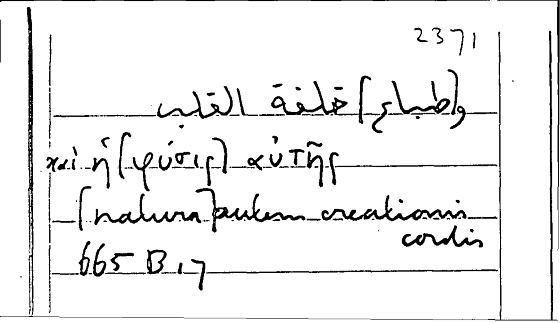 2371
و[طباع] خلقة القلب
καὶ ἡ [φύσις] αὐτῆς
[natura] autem creationis
cordis
665 B 17